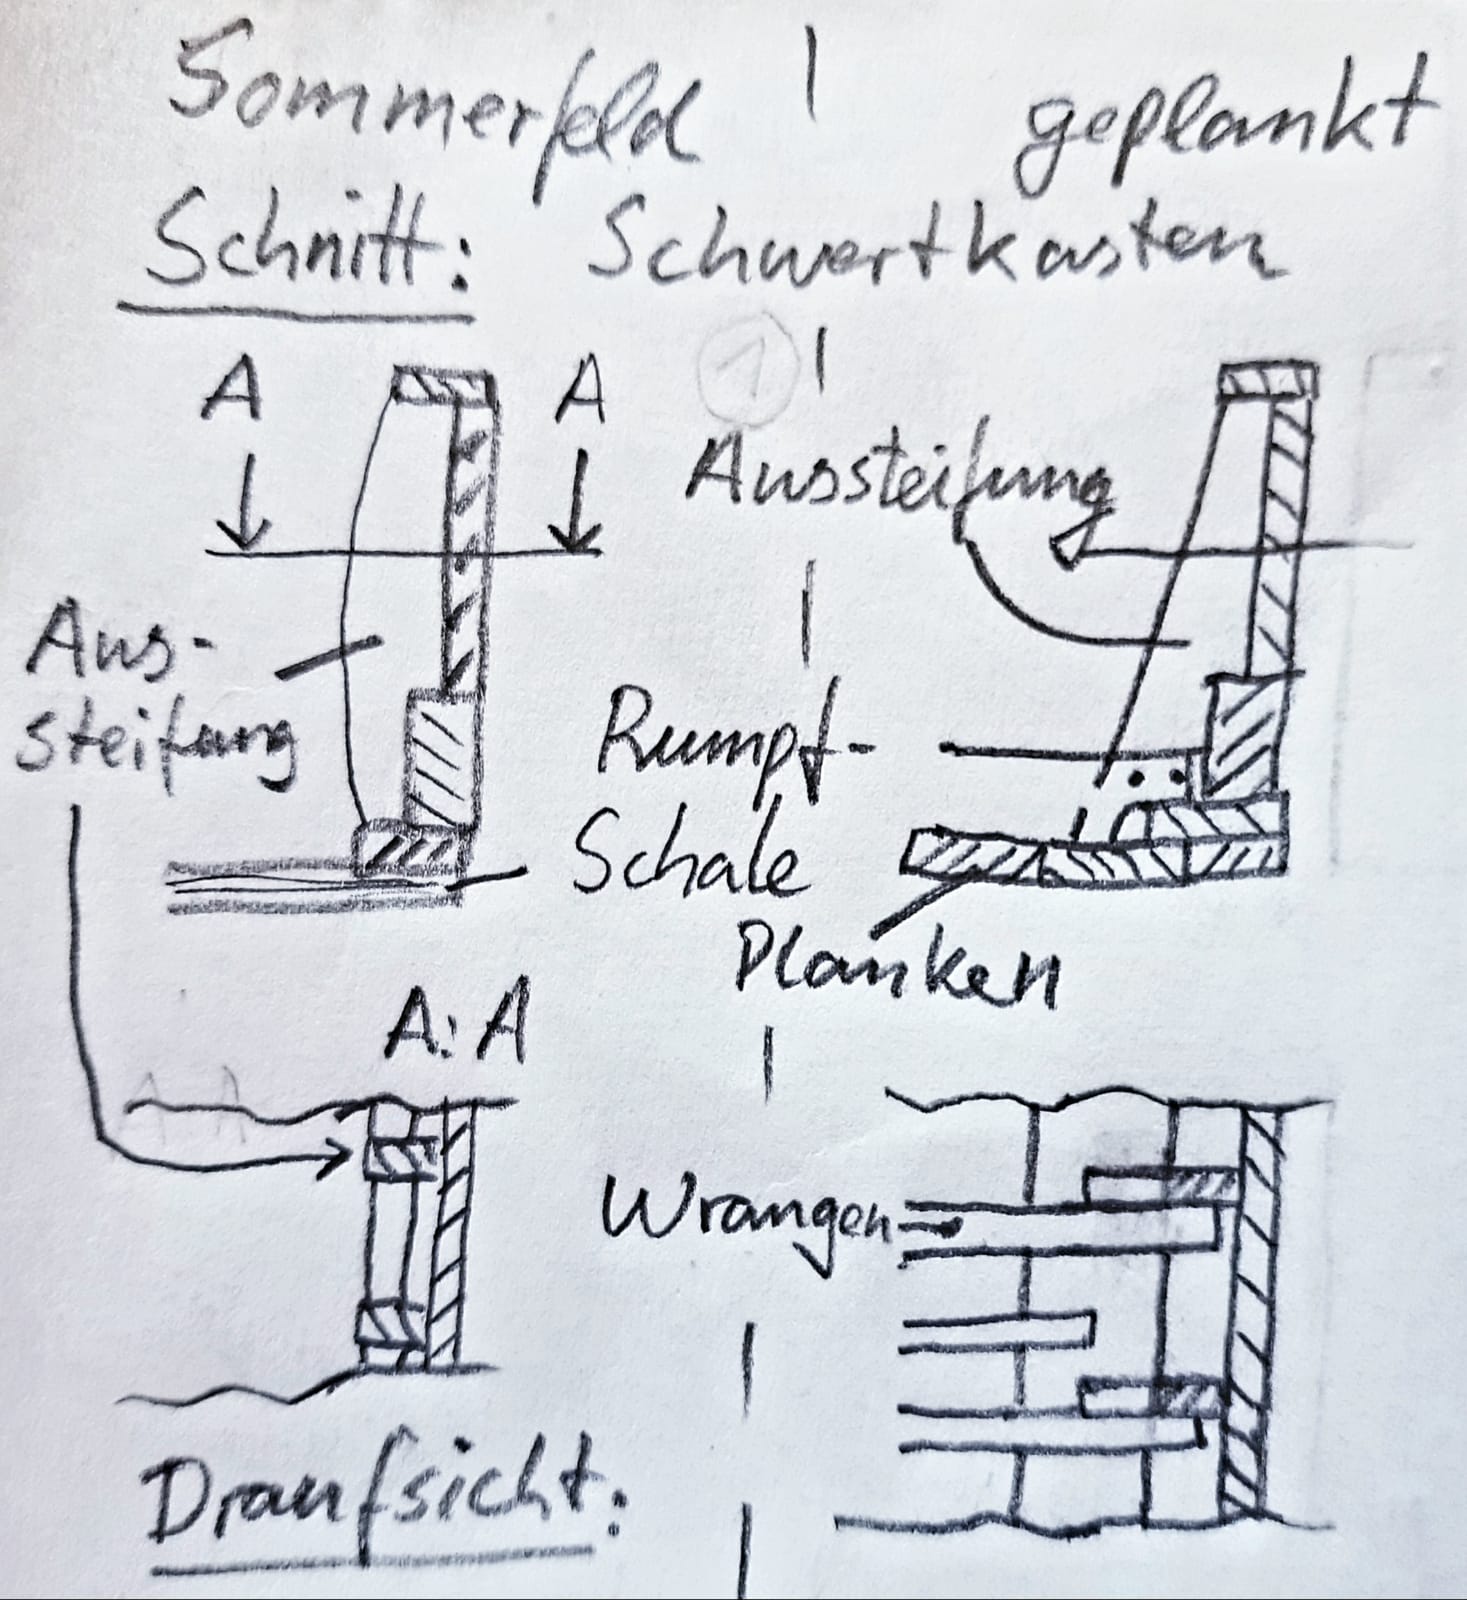 Sommerfeld geplankt
Schnitt: Schwertkasten
1
A A
Aussteifung
Aus-
steifung
Rumpf-
Schale
Planken
A:A
A A
Wrangen
Draufsicht: